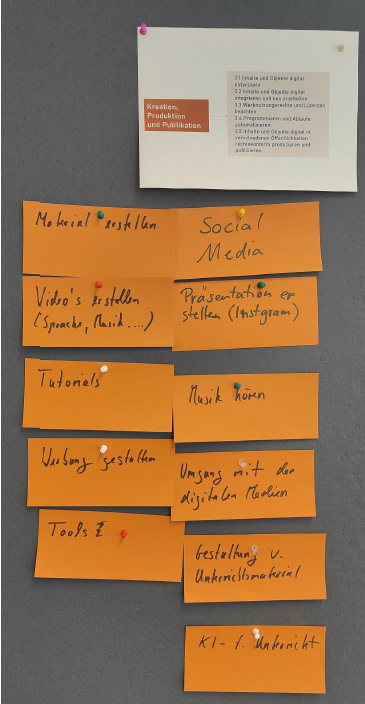 Kreation,
Produktion
und Publikation
3.1 Inhalte und Objekte digital
entwickeln
3.2 Inhalte und Objekte digital
integrieren und neu erarbeiten
3.3 Werknutzungsrechte und Lizenzen
beachten
3.4 Programmieren und Abläufe
automatisieren
3.5 Inhalte und Objekte digital in
verschiedenen Öffentlichkeiten
rechtskonform produzieren und
publizieren
Material erstellen
Video's erstellen
(Sprache, Musik....)
Tutorials
Werbung gestalten
Tools
Social
Media
Präsentation er
stellen (Instgram)
Musik hören
Umgang mit den
digitalen Medien
Gestaltung v.
Unterrichtsmaterial
KI - f. Unterricht